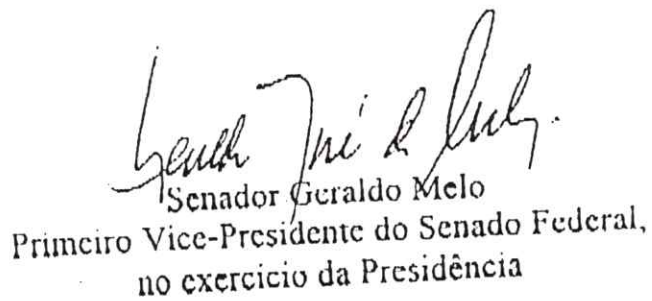 Geraldo José de Melo.
Senador Geraldo Melo
Primeiro Vice-Presidente do Senado Federal,
no exercicio da Presidência